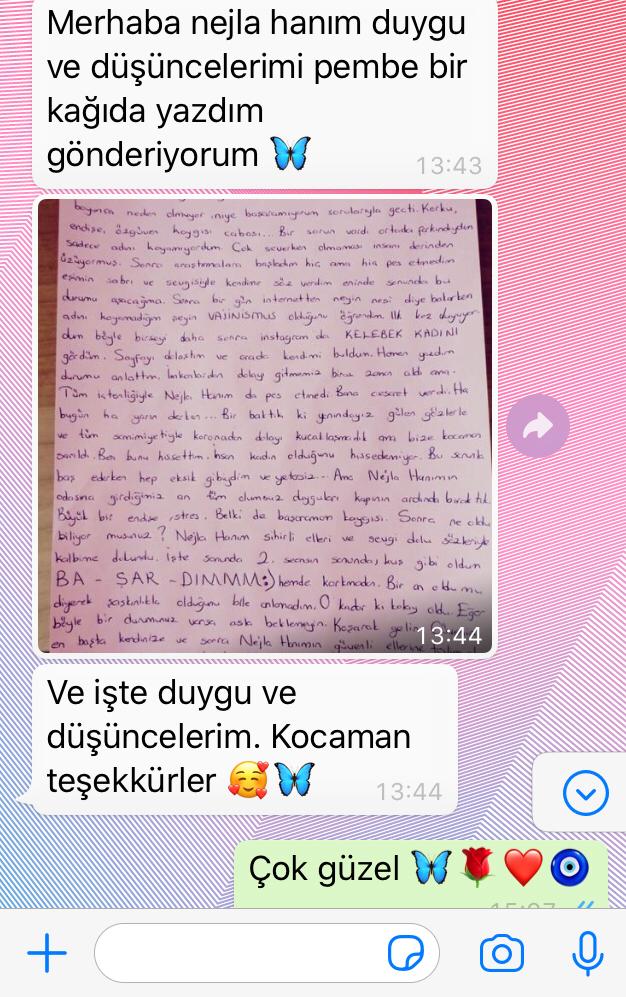 Merhaba nejla hanım duygu
ve düşüncelerimi pembe bir
kağıda yazdım
gönderiyorum 🦋
13:43
neden olmuyor niye başaramıyorum sorularıyla geçti. Korku,
endişe, özgüven kaygısı cabası... Bir sorun vardı ortada farkındaydım
sadece adını koyamıyordum. Çok severken olmaması insanı derinden
üzüyormuş. Sonra araştırmalara başladım hiç ama hiç pes etmedim
eşimin sabrı ve sevgisiyle kendime söz verdim eninde sonunda bu
durumu aşacağıma. Sonra bir gün internetten neyin nesi diye bakarken
adını koyamadığım şeyin VAJİNİSMUS olduğunu öğrendim. İlk kez duyuyor
dum böyle birşeyi daha sonra instagram da KELEBEK KADINI
gördüm. Sayfayı dolaştım ve orada kendimi buldum. Hemen yazdım
durumu anlattım. İmkanlardan dolayı gitmemiz biraz zaman aldı ama.
Tüm içtenliğiyle Nejla Hanım da pes etmedi. Bana cesaret verdi. Ha
bugün ha yarın derken... Bir baktık ki yanındayız gülen gözlerle
ve tüm samimiyetiyle koronadan dolayı kucaklaşmadık ama bize kocaman
sarıldı. Ben bunu hissettim. İnsan kadın olduğunu hissedemiyor. Bu sorunla
baş ederken hep eksik gibiydim ve yetersiz... Ama Nejla Hanımın
odasına girdiğimiz an tüm olumsuz duyguları kapının ardında bıraktık.
Büyük bir endişe, stres. Belki de başaramam kaygısı. Sonra ne oldu
biliyor musunuz? Nejla Hanım sihirli elleri ve sevgi dolu sözleriyle
kalbime dokundu. İşte sonunda 2. seansın sonunda, kuş gibi oldum
BA - ŞAR - DIMMM:) hemde korkmadan. Bir an oldu mu
diyerek şaşkınlıkla olduğunu bile anlamadım. O kadar ki kolay oldu. Eğer
böyle bir durumunuz varsa asla beklemeyin. Koşarak gelin
en başta kendinize ve sonra Nejla Hanımın güvenli ellerine
13:44
Ve işte duygu ve
düşüncelerim. Kocaman
teşekkürler 🥰🦋
13:44
Çok güzel 🦋🌹❤️🧿